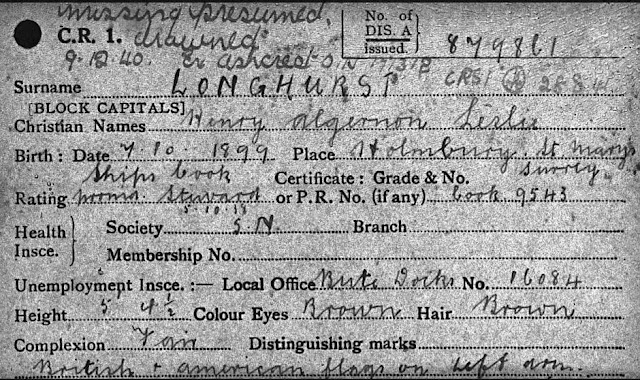 missing presumed,
C.R. 1. drowned.
No. of DIS. A issued. 879861
9.12.40. Ex Ashcrest O.N.
Surname LONGHURST CRS1 2884
[BLOCK CAPITALS]
Christian Names Henry Algernon Leslie
Birth: Date 7.10.1899 Place Holmbury St Marys
Ships Cook Certificate: Grade & No. Surrey
Rating Steward or P.R. No. (if any) Cook 9543
Health Insce. Society S.N. Branch
Membership No.
Unemployment Insce. :— Local Office Bute Docks No. 16084
Height 5 4½ Colour Eyes Brown Hair Brown
Complexion Fair Distinguishing marks
British + American flags on left arm.